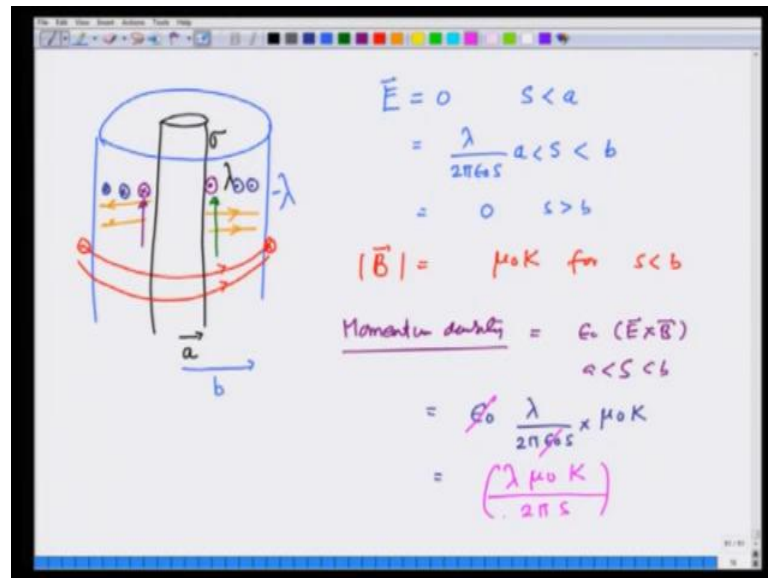 File Edit View Insert Actions Tools Help
σ
λ
-λ
a
b
E⃗ = 0 S < a
= λ / 2π ε₀ s a < S < b
= 0 s > b
|B⃗| = μ₀ K for s < b
Momentum density = ε₀ (E⃗ × B⃗)
a < S < b
= ε₀ λ / 2π ε₀ s × μ₀ K
= (λ μ₀ K / 2π s)